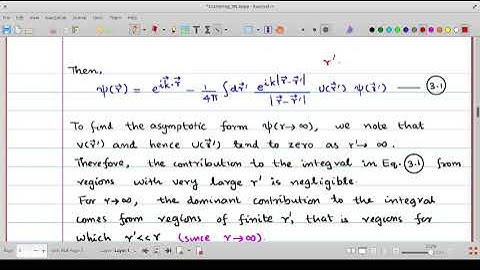 r'.
Then,
ψ(r⃗) = e^{ik⃗·r⃗} − 1/4π ∫dr⃗' e^{ik|r⃗−r⃗'|}/|r⃗−r⃗'| U(r⃗') ψ(r⃗') —— 3.1
To find the asymptotic form ψ(r→∞), we note that
V(r⃗') and hence U(r⃗') tend to zero as r'→ ∞.
Therefore, the contribution to the integral in Eq. 3.1 from
regions with very large r' is negligible.
For r→∞, the dominant contribution to the integral
comes from regions of finite r', that is regions for
which r'<<r (since r→∞)